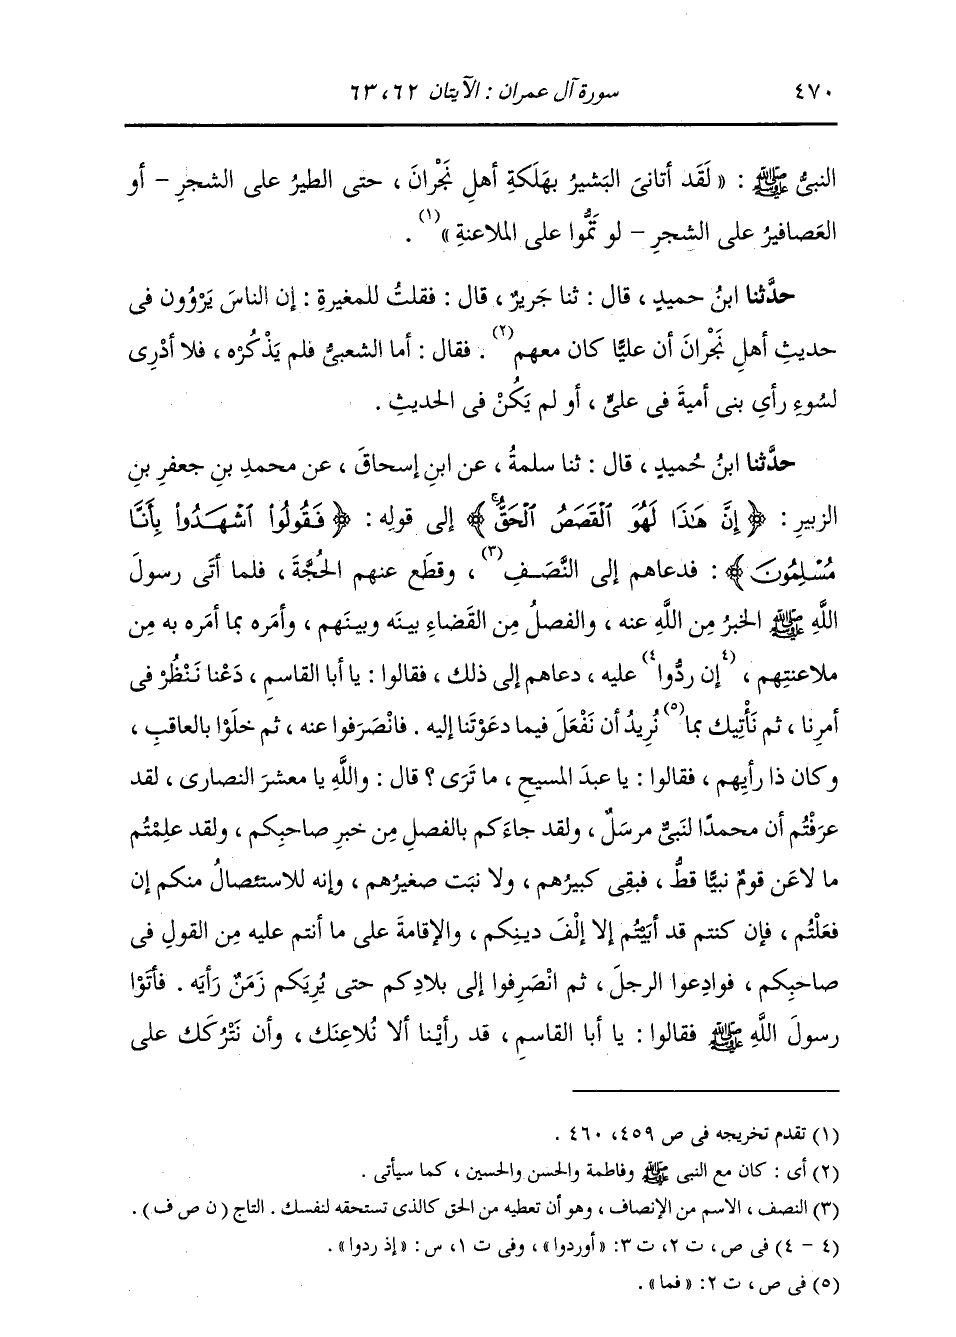 ٤٧٠ سورة آل عمران : الآيتان ٦٢ ، ٦٣
النبىُّ ﷺ : « لَقَد أتانى البَشيرُ بهَلَكةِ أهلِ نَجْرانَ ، حتى الطيرُ على الشجرِ – أو
العَصافيرُ على الشجرِ – لو تَمُّوا على الملاعنةِ » (١) .
حدَّثنا ابنُ حميدٍ ، قال : ثنا جَريرٌ ، قال : فقلتُ للمغيرةِ : إن الناسَ يَرْوُون فى
حديثِ أهلِ نَجْرانَ أن عليًّا كان معهم (٢) . فقال : أما الشعبىُّ فلم يَذْكُرْه ، فلا أدْرِى
لسُوءِ رأىِ بنى أميةَ فى علىٍّ ، أو لم يَكُنْ فى الحديثِ .
حدَّثنا ابنُ حُميدٍ ، قال : ثنا سلمةُ ، عن ابنِ إسحاقَ ، عن محمدِ بنِ جعفرِ بنِ
الزبيرِ : ﴿ إِنَّ هَٰذَا لَهُوَ ٱلْقَصَصُ ٱلْحَقُّ ۚ ﴾ إلى قولِه : ﴿ فَقُولُوا۟ ٱشْهَدُوا۟ بِأَنَّا
مُسْلِمُونَ ﴾ : فدعاهم إلى النَّصَفِ (٣) ، وقطَع عنهم الحُجَّةَ ، فلما أتَى رسولَ
اللَّهِ ﷺ الخبرُ مِن اللَّهِ عنه ، والفصلُ مِن القَضاءِ بينَه وبينَهم ، وأمَره بما أمَره به مِن
ملاعنتِهم ، (٤) إن ردُّوا (٤) عليه ، دعاهم إلى ذلك ، فقالوا : يا أبا القاسمِ ، دَعْنا نَنْظُرْ فى
أمرِنا ، ثم نَأْتِيك بما (٥) نُرِيدُ أن نَفْعَلَ فيما دعَوْتَنا إليه . فانْصَرفوا عنه ، ثم خلَوْا بالعاقبِ ،
وكان ذا رأيِهم ، فقالوا : يا عبدَ المسيحِ ، ما تَرَى ؟ قال : واللَّهِ يا معشرَ النصارى ، لقد
عرَفْتُم أن محمدًا لنَبىٌّ مرسَلٌ ، ولقد جاءَكم بالفصلِ مِن خبرِ صاحبِكم ، ولقد علِمْتُم
ما لاعَن قومٌ نبيًّا قطُّ ، فبقِى كبيرُهم ، ولا نبَت صغيرُهم ، وإنه للاستئصالُ منكم إن
فعَلْتُم ، فإن كنتم قد أبَيْتُم إلا إلْفَ دينِكم ، والإقامةَ على ما أنتم عليه مِن القولِ فى
صاحبِكم ، فوادِعوا الرجلَ ، ثم انْصَرِفوا إلى بلادِكم حتى يُرِيَكم زَمَنٌ رَأيَه . فأتَوْا
رسولَ اللَّهِ ﷺ فقالوا : يا أبا القاسمِ ، قد رأيْنا ألا نُلاعِنَك ، وأن نَتْرُكَك على
(١) تقدم تخريجه فى ص ٤٥٩، ٤٦٠ .
(٢) أى : كان مع النبى ﷺ وفاطمة والحسن والحسين ، كما سيأتى .
(٣) النصف ، الاسم من الإنصاف ، وهو أن تعطيه من الحق كالذى تستحقه لنفسك . التاج (ن ص ف) .
(٤ – ٤) فى ص ، ت ٢، ت ٣: «أوردوا» ، وفى ت ١، س : «إذ ردوا» .
(٥) فى ص ، ت ٢: «فما» .